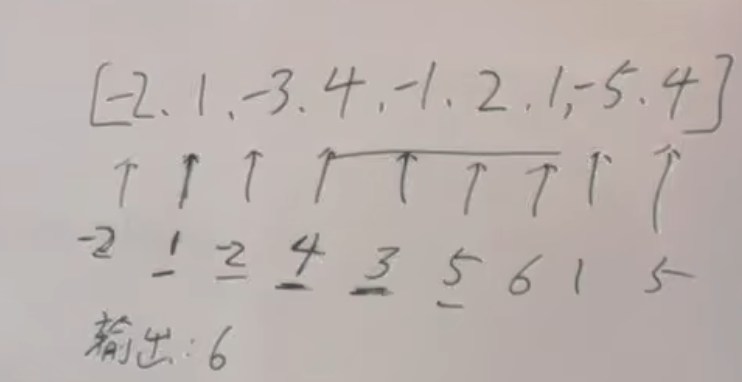 [-2、1、-3、4、-1、2、1,-5、4]
-2 1 -2 4 3 5 6 1 5
输出:6